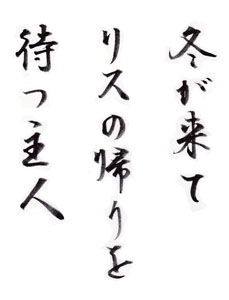 冬が来て
リスの帰りを
待つ主人